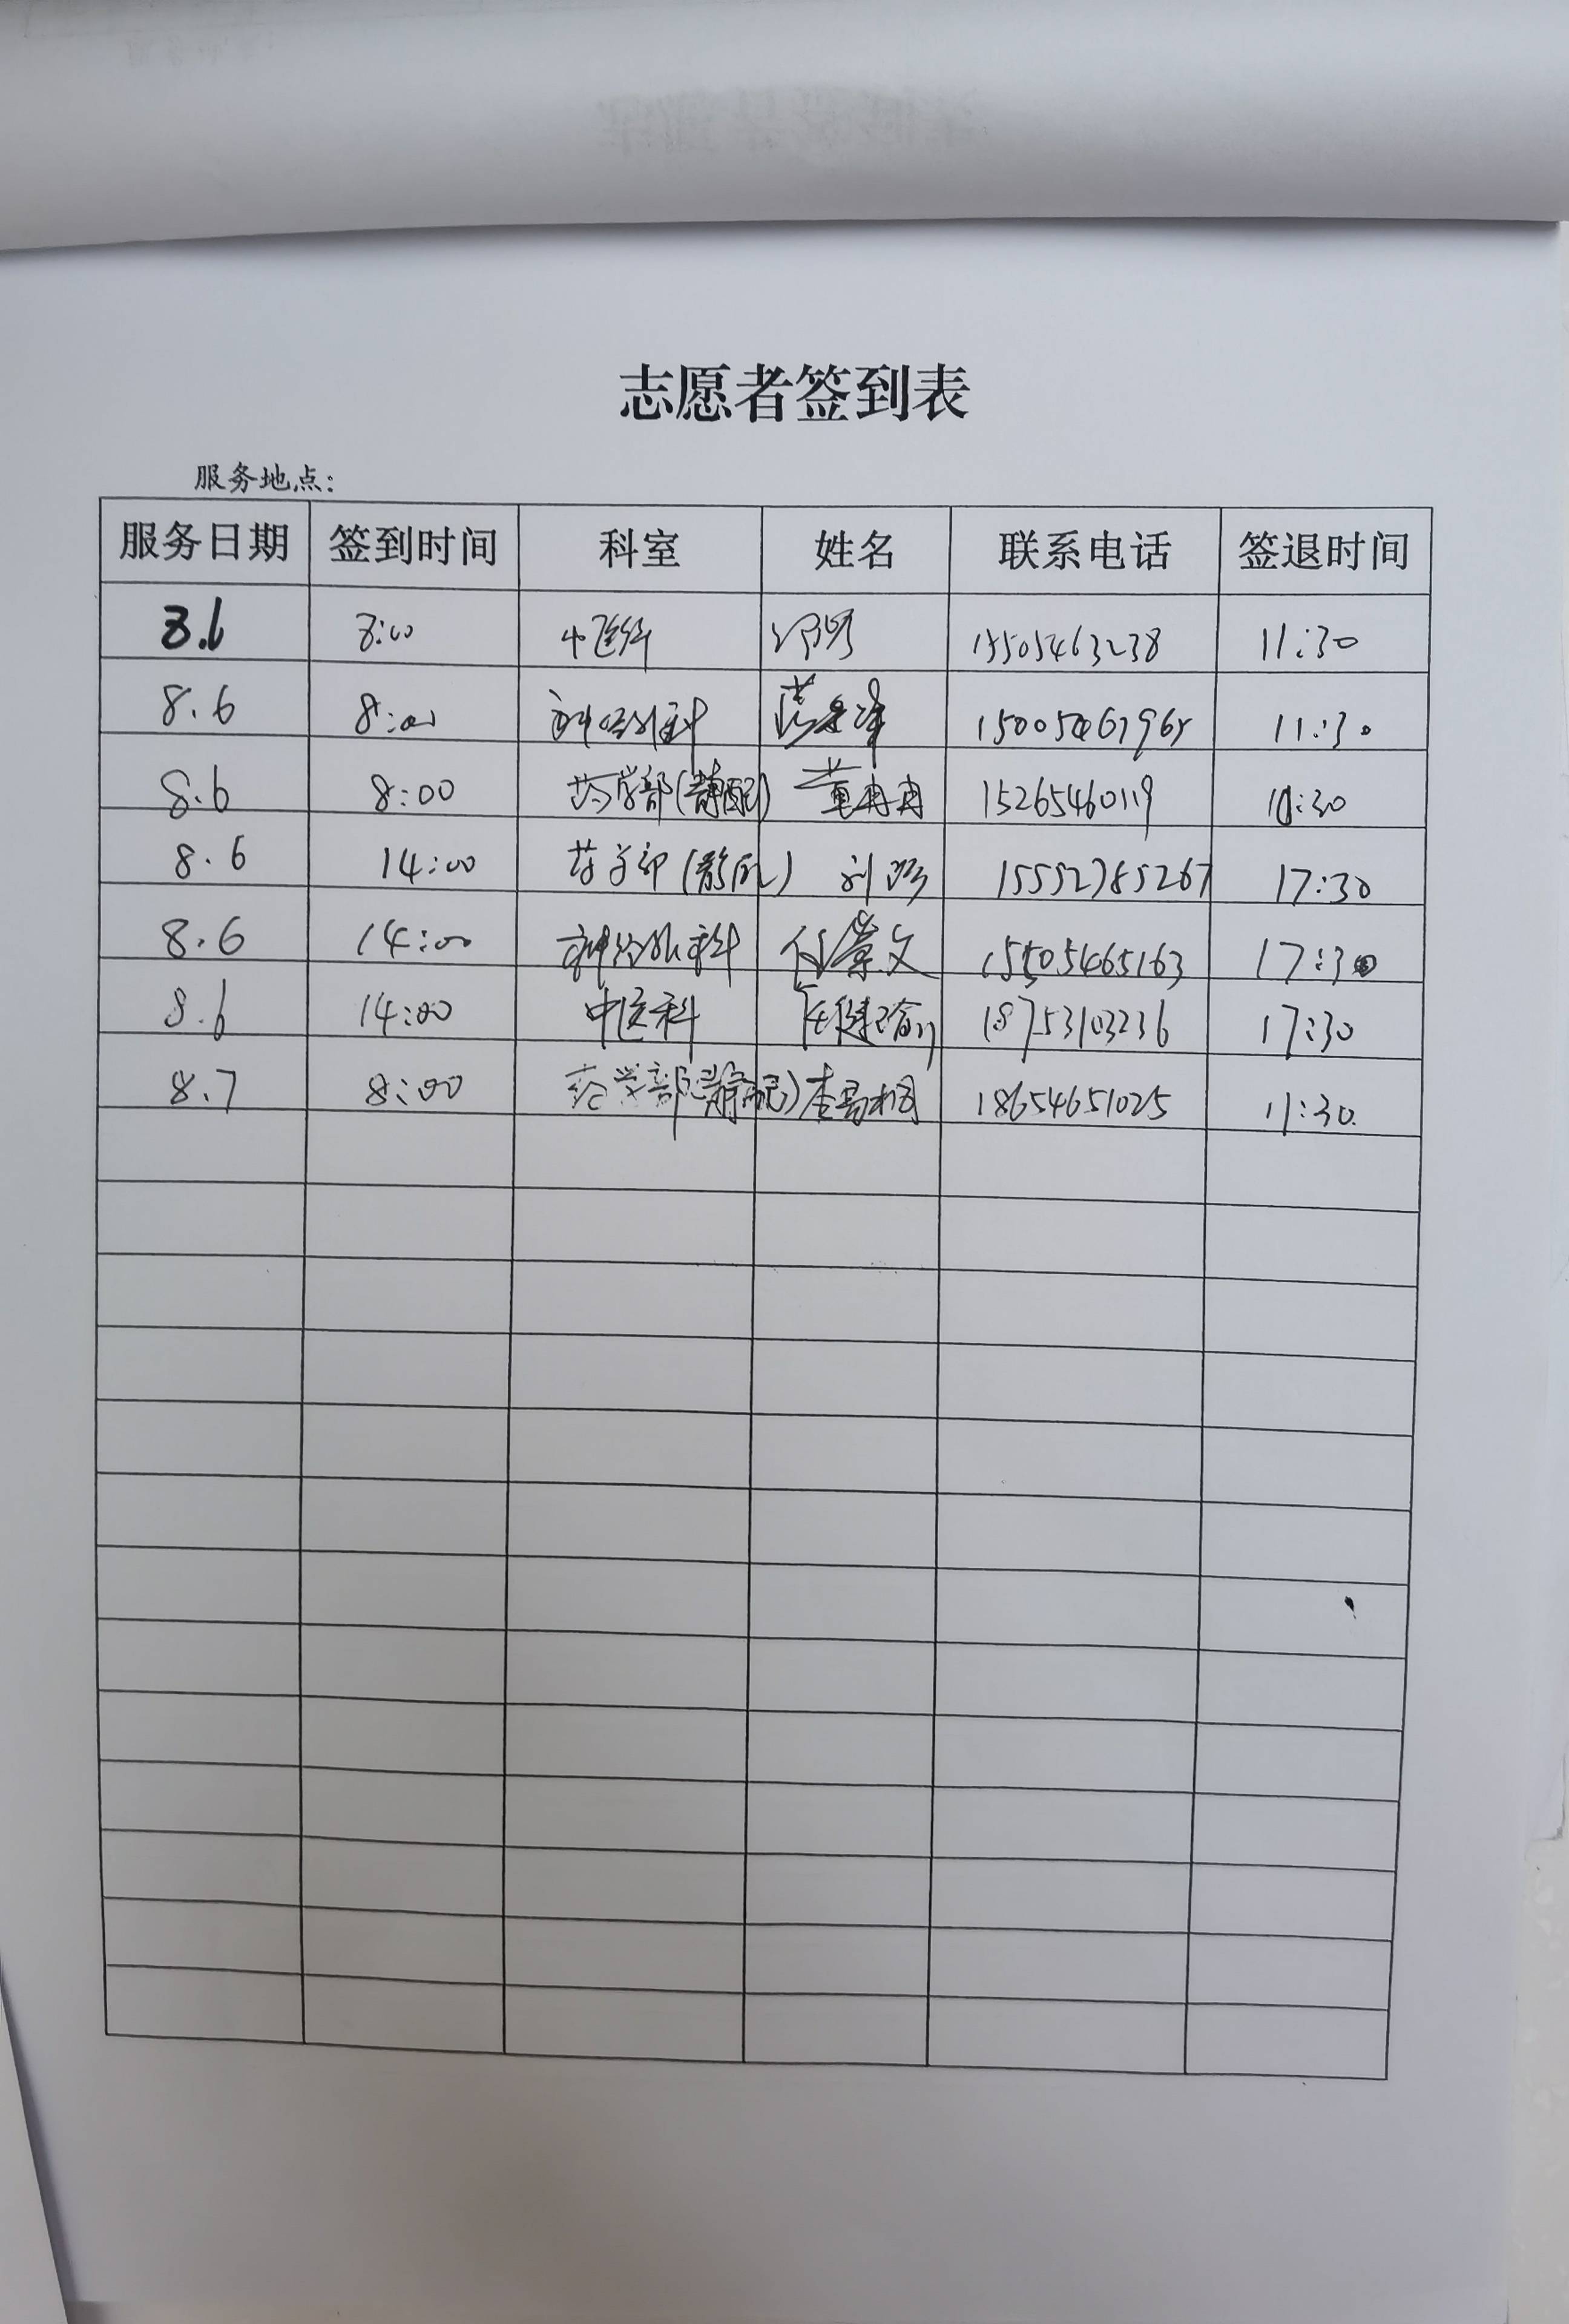 志愿者签到表
服务地点：
服务日期 签到时间 科室 姓名 联系电话 签退时间
8.6 8:00 中医科 15505463238 11:30
8.6 8:00 神经外科 11:30
8.6 8:00 药学部(静配) 董冉冉 15265460119 11:30
8.6 14:00 药学部(静配) 刘 15552785267 17:30
8.6 14:00 神经外科 付崇文 15505465163 17:30
8.6 14:00 中医科 任健 18753103236 17:30
8.7 8:00 药学部(静配) 李 18654651025 11:30